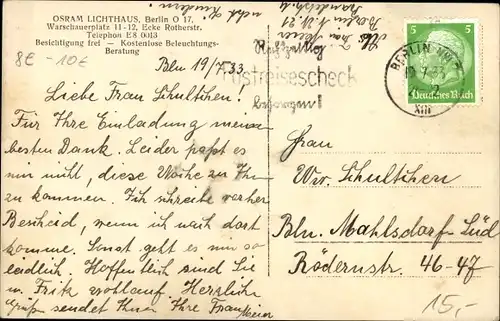 OSRAM LICHTHAUS, Berlin O 17,
Warschauerplatz 11-12, Ecke Rotherstr.
Telephon E8 0013
Besichtigung frei — Kostenlose Beleuchtungs-
Beratung
8€ - 10€
Bln 19/7.33
Liebe Frau Schultchen!
Für Ihre Einladung meinen
besten Dank. Leider paßt es
mir nicht, diese Woche zu Ihnen
zu kommen. Ich schreibe vorher
Bescheid, wenn ich nach dort
komme. Sonst geht es mir so
leidlich. Hoffentlich sind Sie
u. Fritz wohlauf. Herzliche
Grüße sendet Ihnen Ihre Frau Meier
nicht d. Kindern
Abs. Frau
Meier
Berlin N.W. 21
Postreisescheck
BERLIN NW
XIII
5 5
Deutsches Reich
Frau
Ww. Schultchen
Bln. Mahlsdorf-Süd
Rödernstr. 46-47
15,-